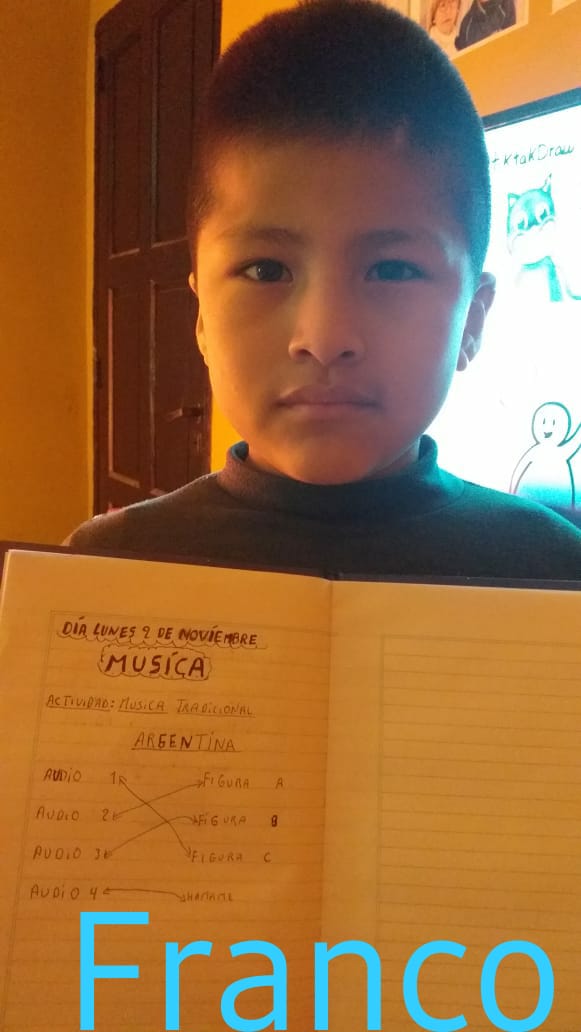 tktakDraw
DÍA LUNES 2 DE NOVÍEMBRE
MUSÍCA
ACTIVIDAD: MUSICA TRADICIONAL
ARGENTÍNA
AUDIO 1 FIGURA A
AUDIO 2 FIGURA B
AUDIO 3 FIGURA C
AUDIO 4 HAMAME
Franco